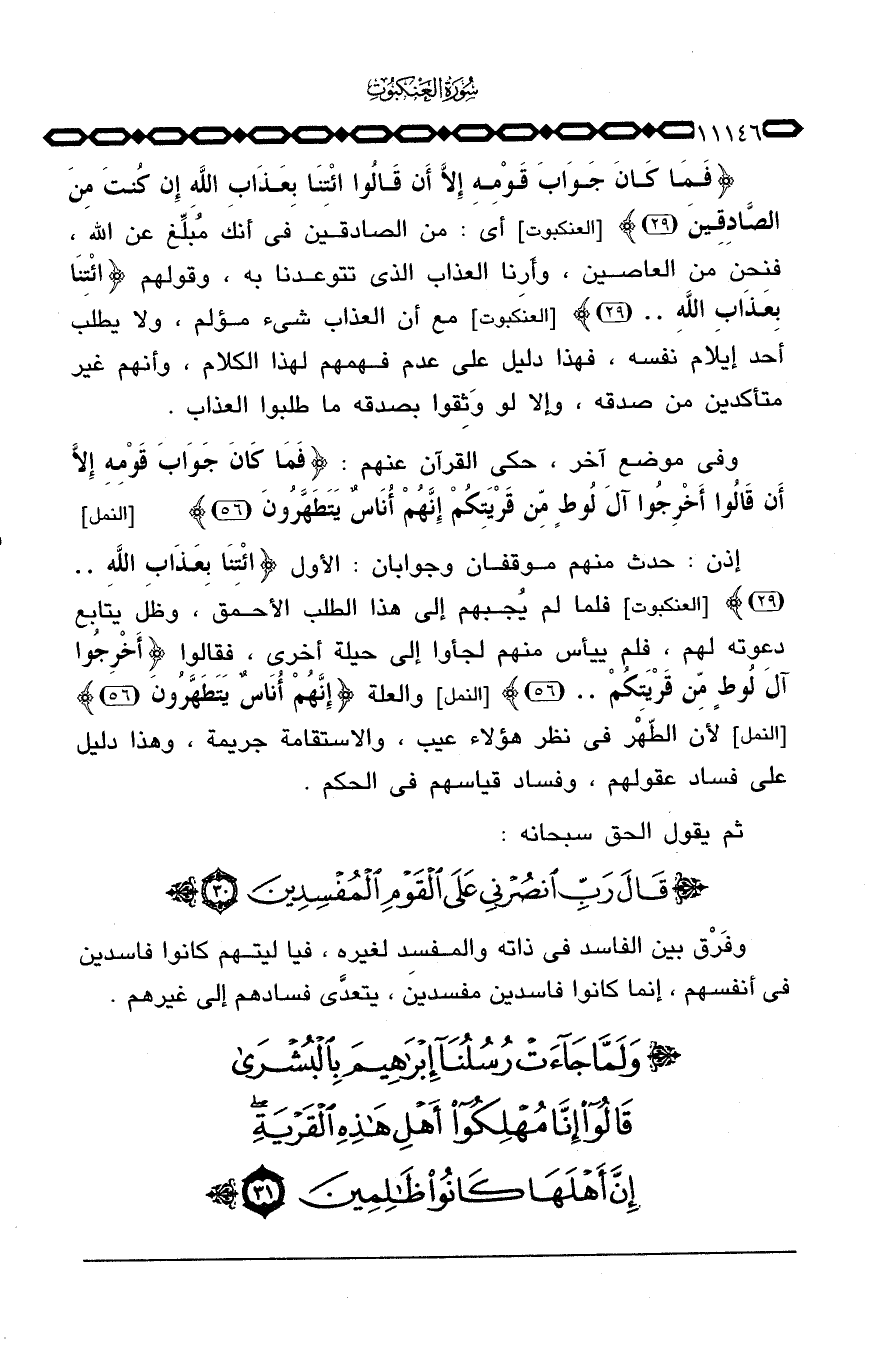 سُورَةُ العَنكَبُوتِ
١١١٤٦
﴿ فَمَا كَانَ جَوَابَ قَوْمِهِ إِلاَّ أَن قَالُوا ائْتِنَا بِعَذَابِ اللَّهِ إِن كُنتَ مِنَ
الصَّادِقِينَ (٢٩) ﴾ [العنكبوت] أى : من الصادقين فى أنك مُبلِّغ عن الله ،
فنحن من العاصين ، وأرنا العذاب الذى تتوعدنا به ، وقولهم ﴿ ائْتِنَا
بِعَذَابِ اللَّهِ .. (٢٩) ﴾ [العنكبوت] مع أن العذاب شىء مؤلم ، ولا يطلب
أحد إيلام نفسه ، فهذا دليل على عدم فهمهم لهذا الكلام ، وأنهم غير
متأكدين من صدقه ، وإلا لو وَثِقوا بصدقه ما طلبوا العذاب .
وفى موضع آخر ، حكى القرآن عنهم : ﴿ فَمَا كَانَ جَوَابَ قَوْمِهِ إِلاَّ
أَن قَالُوا أَخْرِجُوا آلَ لُوطٍ مِّن قَرْيَتِكُمْ إِنَّهُمْ أُنَاسٌ يَتَطَهَّرُونَ (٥٦) ﴾ [النمل]
إذن : حدث منهم موقفان وجوابان : الأول ﴿ ائْتِنَا بِعَذَابِ اللَّهِ ..
(٢٩) ﴾ [العنكبوت] فلما لم يُجِبهم إلى هذا الطلب الأحمق ، وظل يتابع
دعوته لهم ، فلم ييأس منهم لجأوا إلى حيلة أخرى ، فقالوا ﴿ أَخْرِجُوا
آلَ لُوطٍ مِّن قَرْيَتِكُمْ .. (٥٦) ﴾ [النمل] والعلة ﴿ إِنَّهُمْ أُنَاسٌ يَتَطَهَّرُونَ (٥٦) ﴾
[النمل] لأن الطّهْر فى نظر هؤلاء عيب ، والاستقامة جريمة ، وهذا دليل
على فساد عقولهم ، وفساد قياسهم فى الحكم .
ثم يقول الحق سبحانه :
﴿ قَالَ رَبِّ ٱنصُرْنِي عَلَى ٱلْقَوْمِ ٱلْمُفْسِدِينَ ٣٠ ﴾
وفَرْق بين الفاسد فى ذاته والمفسد لغيره ، فيا ليتهم كانوا فاسدين
فى أنفسهم ، إنما كانوا فاسدين مفسدين ، يتعدَّى فسادهم إلى غيرهم .
﴿ وَلَمَّا جَآءَتْ رُسُلُنَآ إِبْرَٰهِيمَ بِٱلْبُشْرَىٰ
قَالُوٓاْ إِنَّا مُهْلِكُوٓاْ أَهْلِ هَٰذِهِ ٱلْقَرْيَةِۖ
إِنَّ أَهْلَهَا كَانُواْ ظَٰلِمِينَ ٣١ ﴾